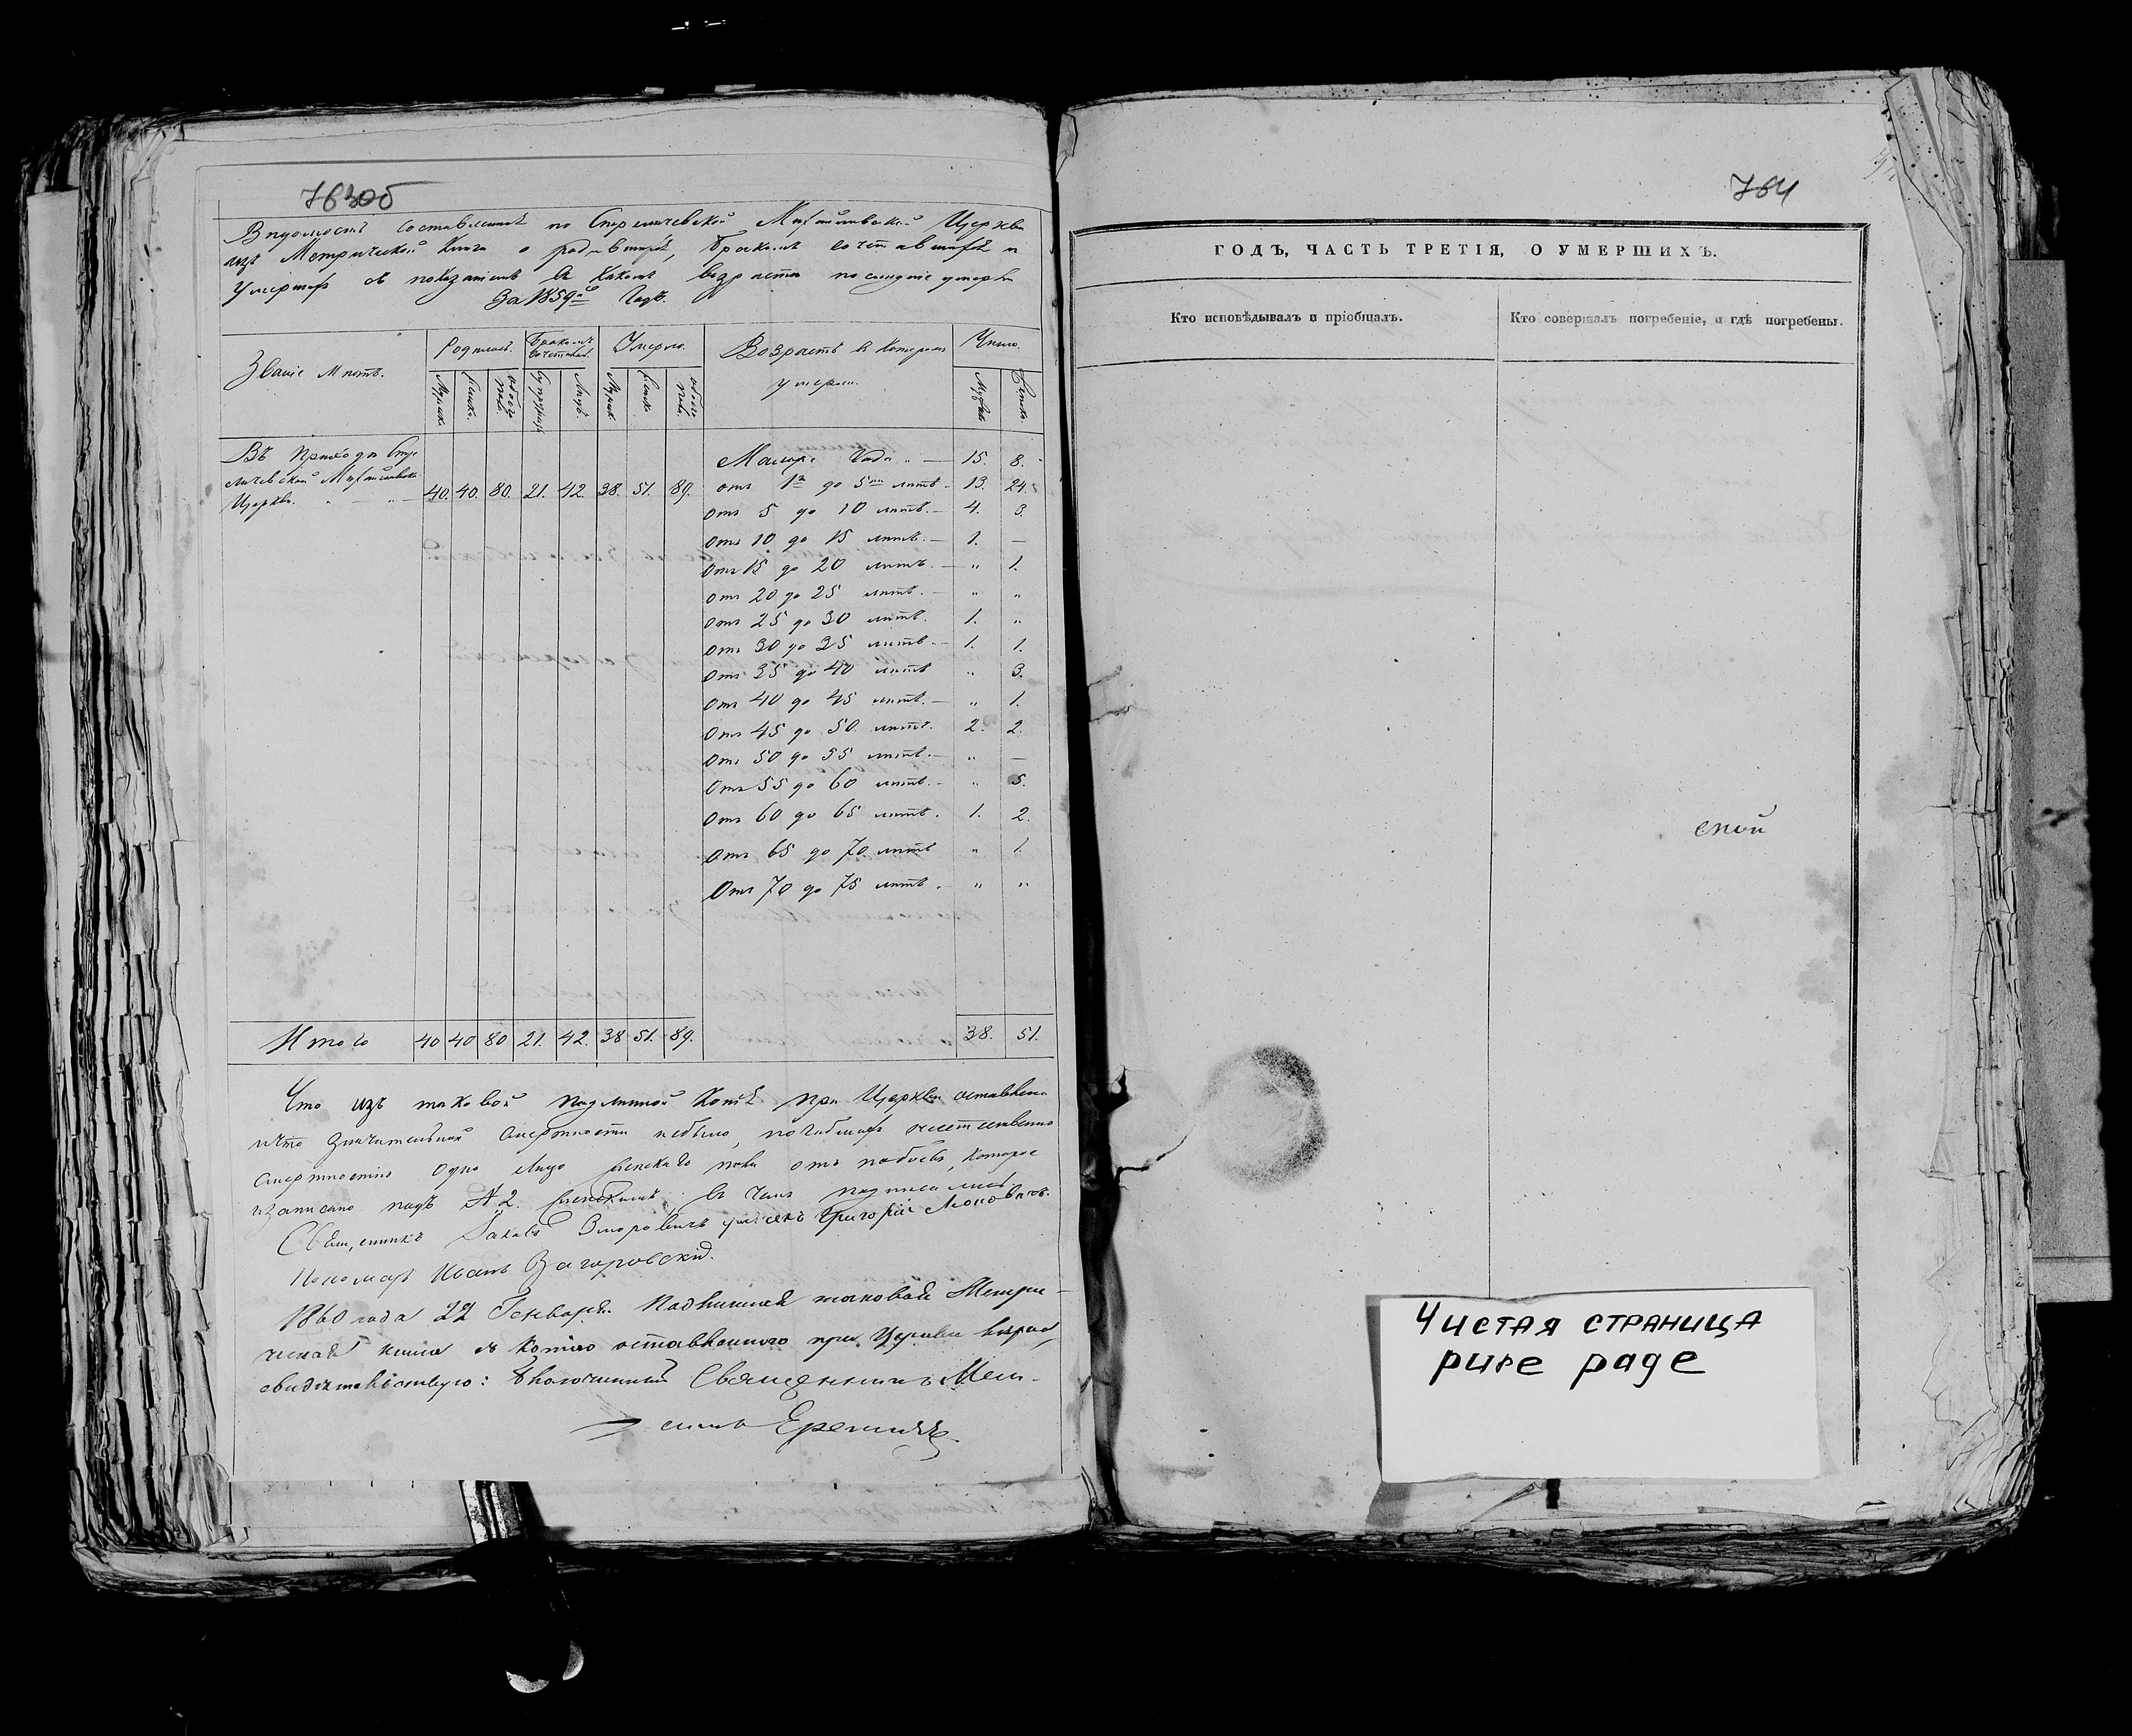 763об
Вѣдомость составленная по Михайловской Церкви
изъ Метрической Книги о родившихъ, бракомъ сочетавшихъ и
умершихъ съ показаніемъ въ какомъ возрастѣ послѣдніе умерли
За 1859й Годъ.
Званіе Мѣстъ.
Родилось.
Бракомъ сочетались.
Умерло.
Возрастъ въ которомъ умерли.
Число.
Мужеска Женска обоего пола. Супружествъ Лицъ. Мужеск. Женска обоего пола. Мужеск. Женска.
Въ Приходѣ
Михайловской
Церкви. 40. 40. 80. 21. 42. 38. 51. 89.
Года 15. 8.
отъ 1го до 5ти лѣтъ 13. 24.
отъ 5 до 10 лѣтъ. 4. 3.
отъ 10 до 15 лѣтъ. 1. —
отъ 15 до 20 лѣтъ. " 1.
отъ 20 до 25 лѣтъ. " "
отъ 25 до 30 лѣтъ. 1. "
отъ 30 до 35 лѣтъ. 1. 1.
отъ 35 до 40 лѣтъ " 3.
отъ 40 до 45 лѣтъ. " 1.
отъ 45 до 50 лѣтъ. 2. 2.
отъ 50 до 55 лѣтъ. " —
отъ 55 до 60 лѣтъ. " 5.
отъ 60 до 65 лѣтъ. 1. 2.
отъ 65 до 70 лѣтъ " 1.
Отъ 70 до 75 лѣтъ. " "
Итого 40 40 80 21. 42. 38 51. 89. 38. 51.
Что изъ таковой подлинной Копія при Церкви оставлена
и что значительной смертности небыло,
смертностію одно лицо женскаго пола отъ побоевъ, которое
и записано подъ № 2. женскимъ; въ чемъ
Священникъ Григорій
Пономарь Иванъ Загоровскій.
1860 года 22 Генваря. таковая Метри-
ческая книга съ копіею оставленною при Церкви вѣрна,
свидѣтельствую: Благочинный Священникъ

764
ГОДЪ, ЧАСТЬ ТРЕТІЯ, О УМЕРШИХЪ.
Кто исповѣдывалъ и пріобщалъ.
Кто совершалъ погребеніе, и гдѣ погребены.
ской
Чистая страница
pure page